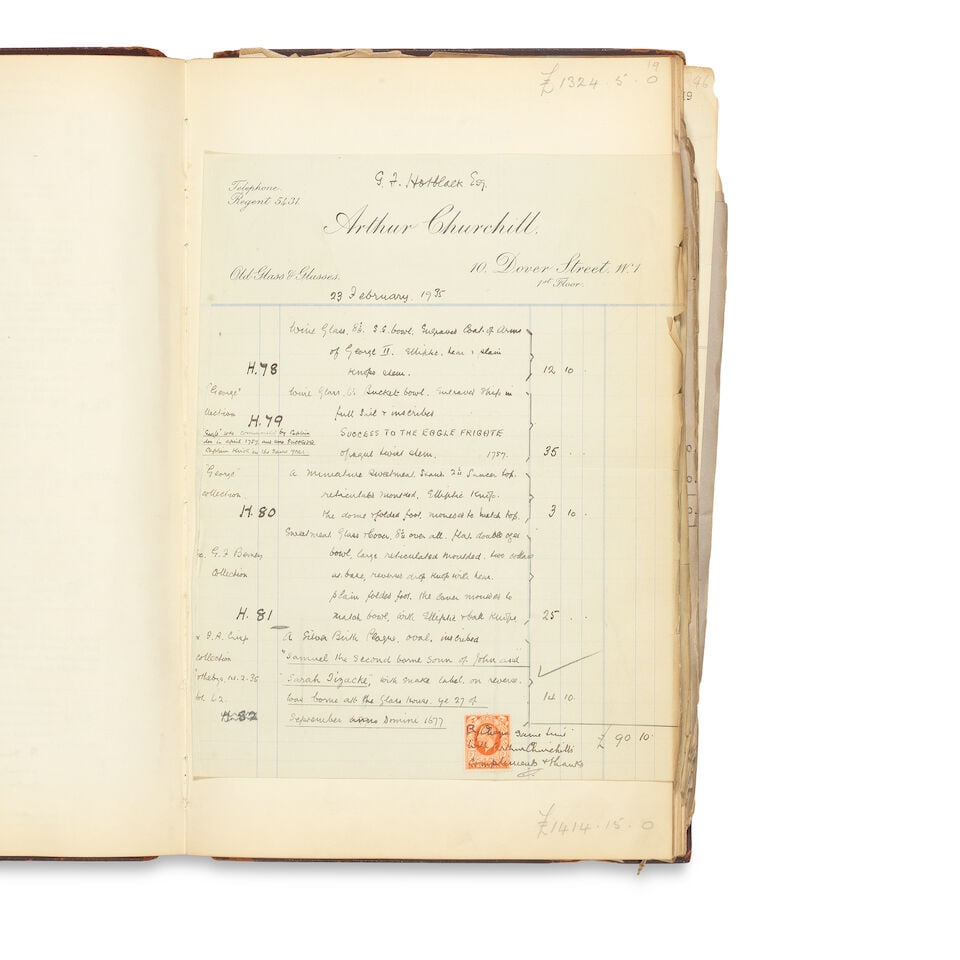 19
£1324 . 5 . 0
46
19
G. F. Hotblack Esq.
Telephone.
Regent 5431.
Arthur Churchill.
Old Glass & Glasses.
10, Dover Street, W.1
1st Floor.
23 February. 1935
Wine Glass, bowl, Engraved Coat of Arms
of George II. Elliptic, &
H.78 Knops stem. 12 10 .
"George" Wine Glass, Bucket bowl. Engraved Ship in
collection full Sail & inscribed
H.79
was commanded by Captain SUCCESS TO THE EAGLE FRIGATE
in April 1757 and was
Captain in the same year. Opaque twist stem. 1757. 35 . .
"George" A Miniature Sweetmeat Stand, top.
collection reticulated moulded, Elliptic Knop.
H.80 the dome & folded foot, moulded to match top. 3 10 .
Sweetmeat Glass & Cover, over all. flat double ogee
G. F. Berney bowl, large reticulated moulded. two collars
Collection at base, reverse drop Knop with
plain folded foot. the cover moulded to
H. 81 match bowl, with Elliptic & ball Knops, 25 . .
A Silver Birth Plaque, oval, inscribed
collection "Samuel the Second borne Sonn of John and
Sotheby, "Sarah Tizacke," with label, on reverse.
lot was borne att the Glass House. ye 27 of 14 10.
H.82 September Domine 1677
By Cheque same time £ 90 10
With Arthur Churchill's
Compliments & thanks
£1414 . 15 . 0